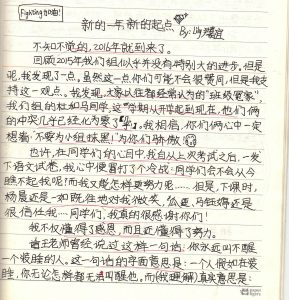 Fighting加油!
新的一年,新的起点
By:
不知不觉的,2016年就到来了。
回顾2015年我们组似乎并没有特别大的进步。但是
呢,我发现了一点。虽然这一点你们可能不会很赞同,但是我支
持这一观点。我发现,大家从任都经常认为的"班级冤家",
我们组的杜和马同学,这一学期从开学起到现在,他们俩
的冲突几乎已经化为零了。我相信,你们俩心中一定
想着:"不要为小组抹黑!"为你们骄傲
也许,在同学们的心目中,我自从上次考试之后,一发
下语文试卷,我心中便冒打了个冷战:同学们会不会从今
瞧不起我呢?而我又能怎样要努力呢……但是,下课时,
杨晨还是一如既往地对我微笑,瓜亚、马钰婷还是
很信任我…同学们,我真的很感谢你们!
我不仅懂得了感恩,而且还懂得了努力。
诸王老师曾经说过这样一句话:你永远叫不醒
一个装睡的人。这一句话的字面意思是:一个人假如在装
睡,你无论怎样都无法叫醒他。而(我理解)真实意思是: